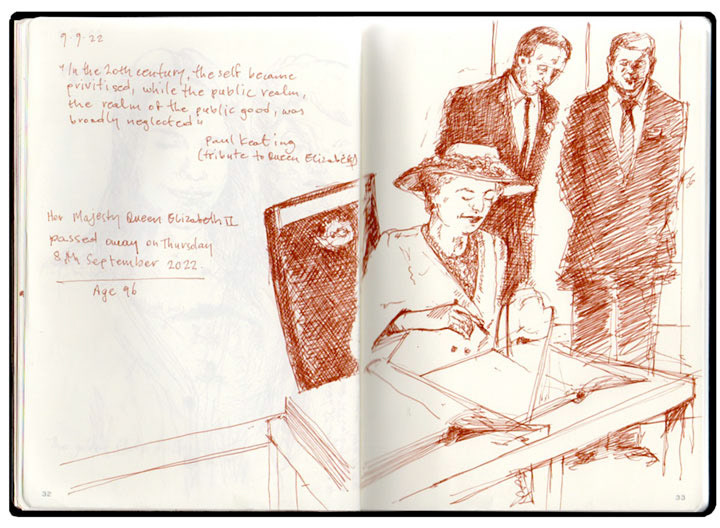 9.9.22
"In the 20th century, the self became
privitised, while the public realm,
the realm of the public good, was
broadly neglected"
Paul Keating
(tribute to Queen Elizabeth)
Her Majesty Queen Elizabeth II
passed away on Thursday
8th September 2022.
Age 96
32
33